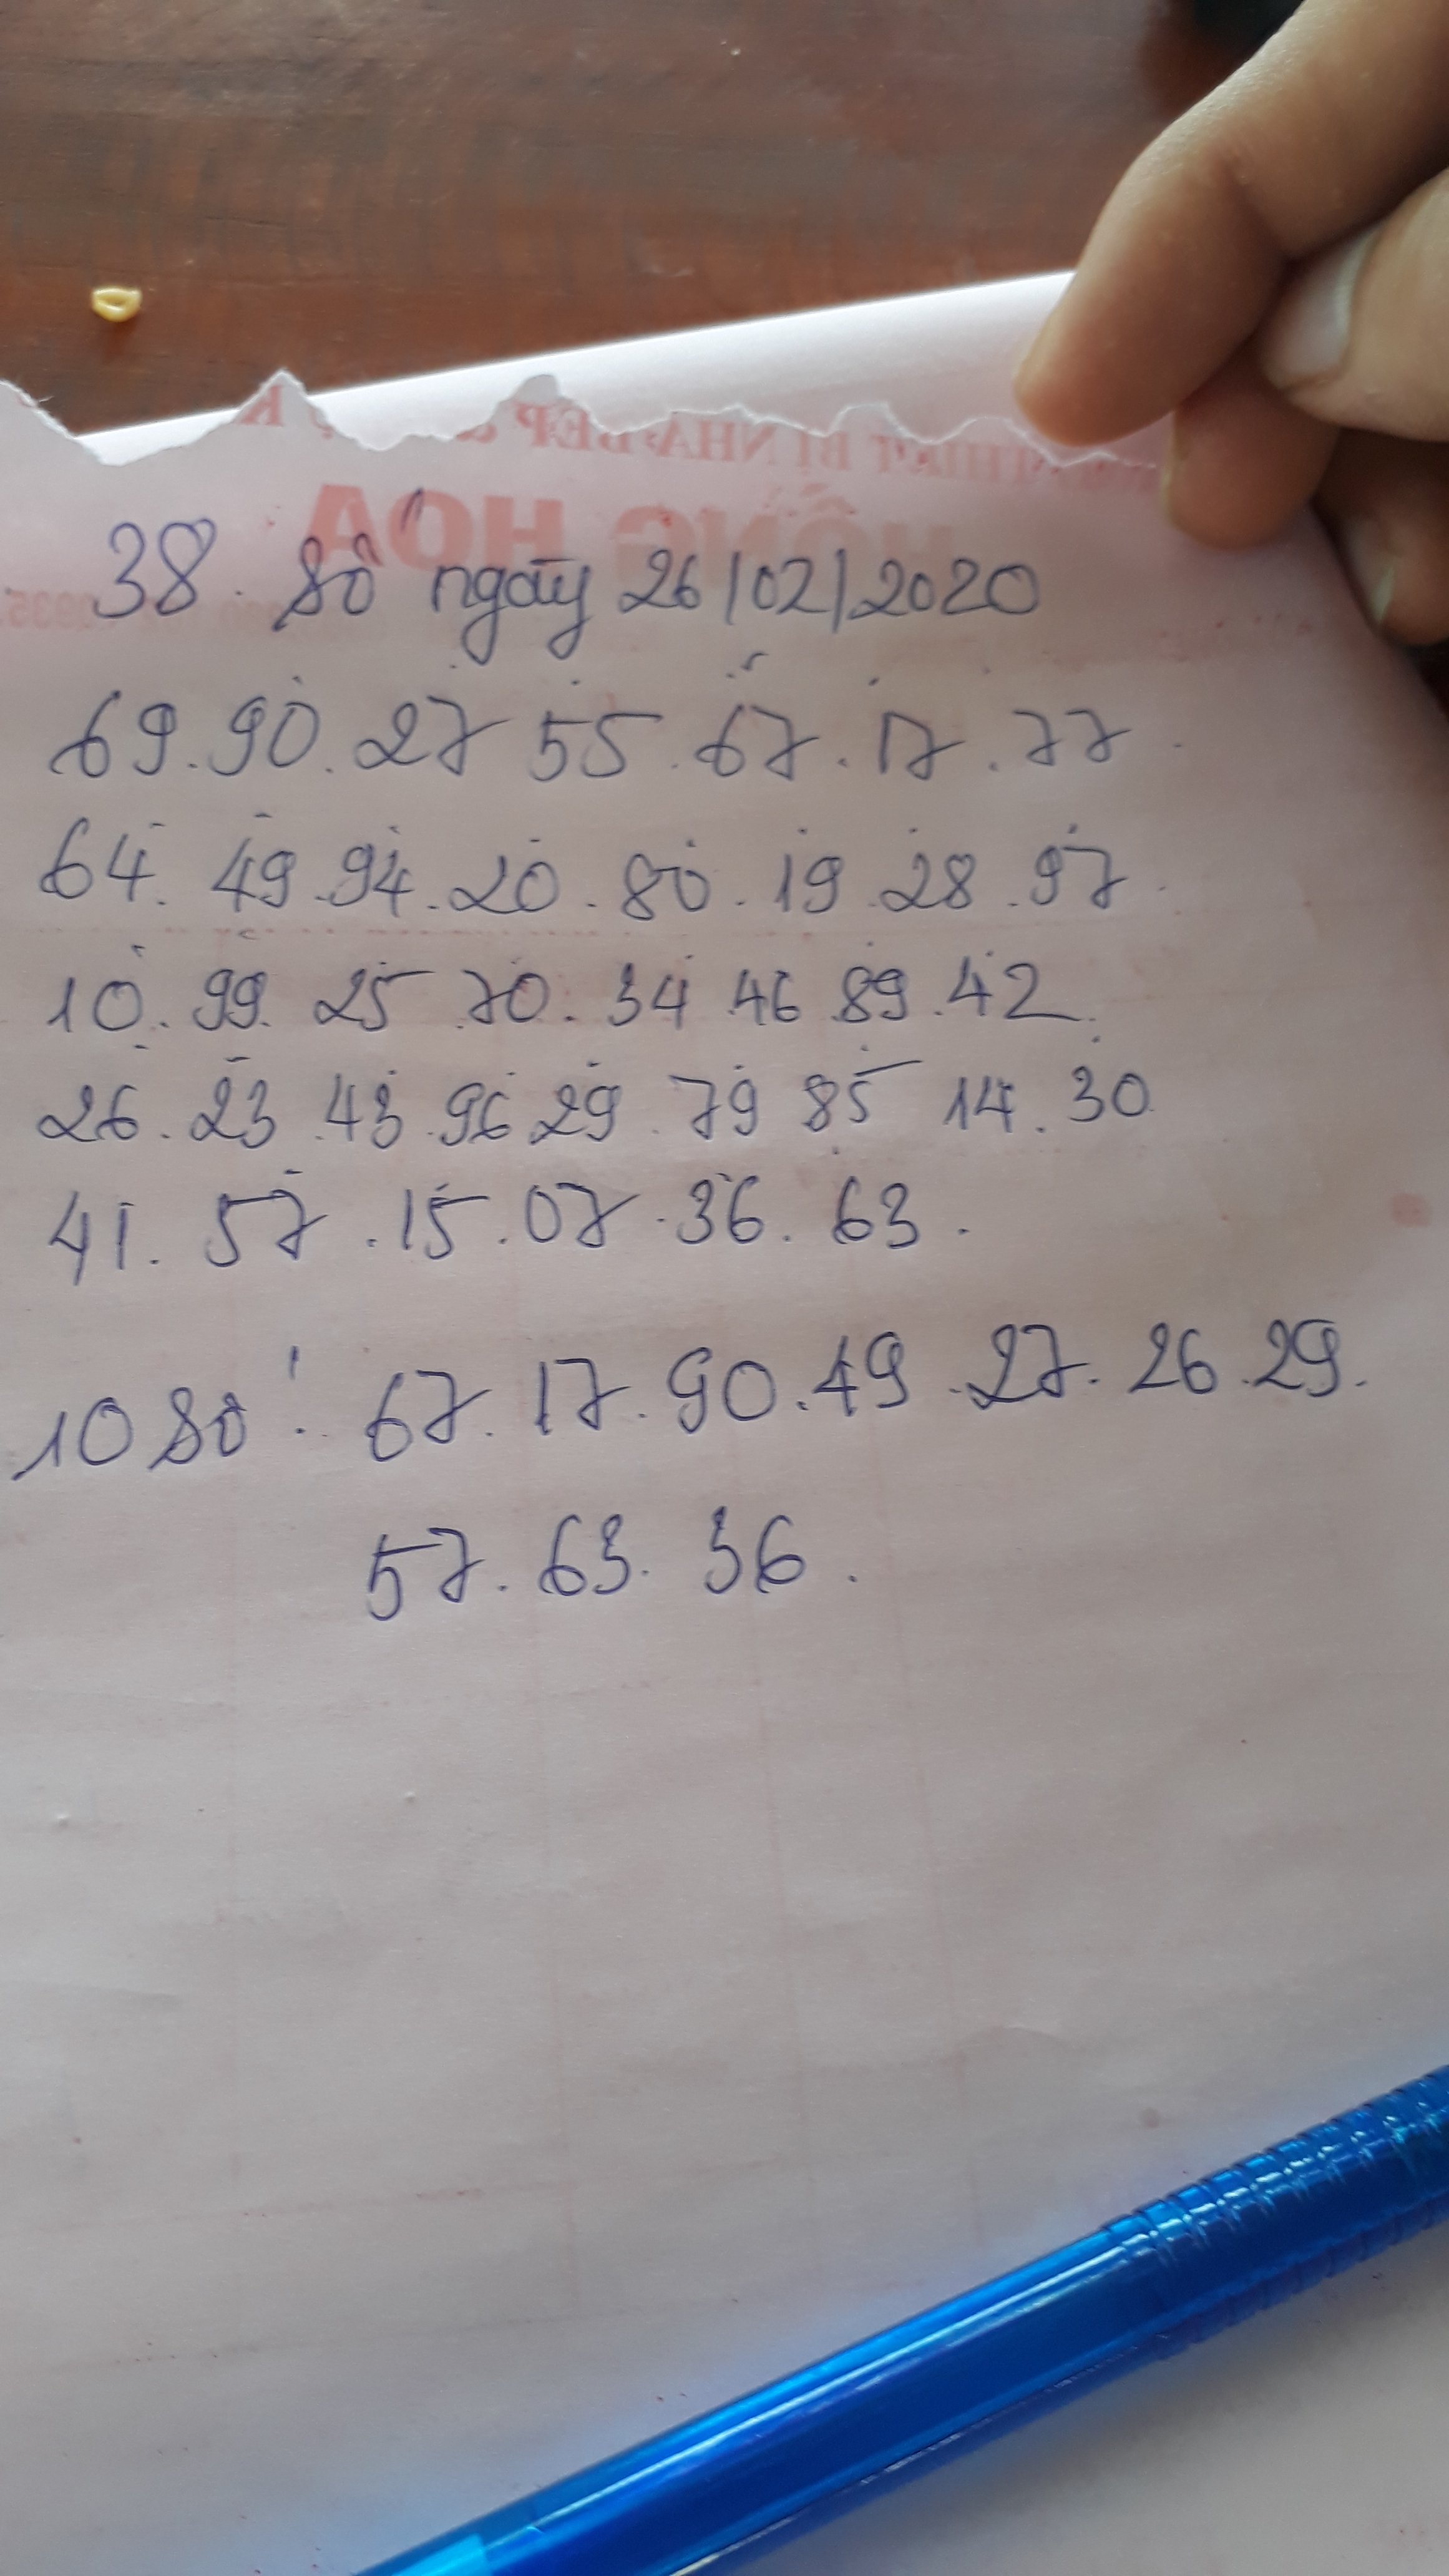 38. số ngày 26/02/2020
69.90.27 55.67.17.77.
64. 49.94.20.80.19.28.97.
10.99.25 70.34 46 89.42.
26.23.43.96 29.79 85 14.30
41.57.15.07.36.63.
10 số: 67.17.90.49.27.26.29.
57.63.36.